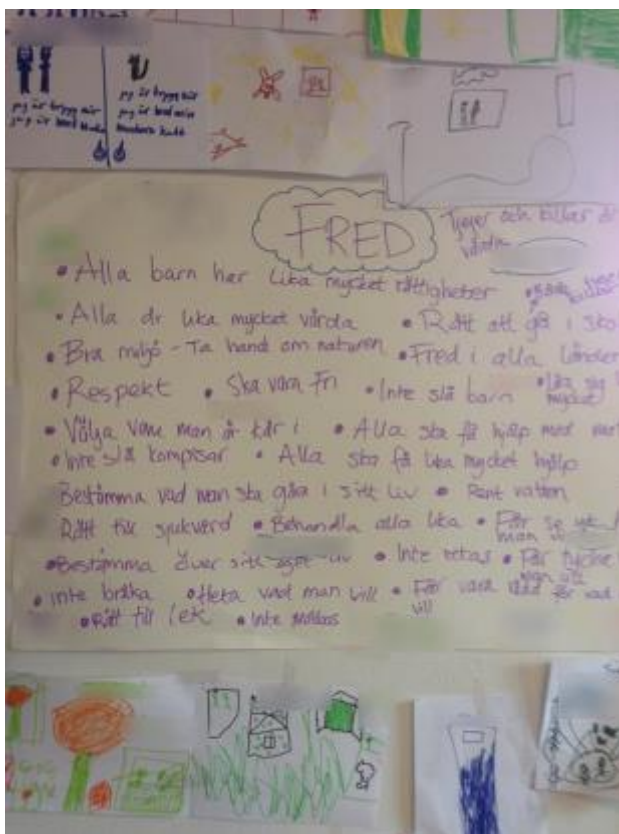 jag är trygg när
jag är med
jag är trygg när
jag är med min
katt
FRED
Tjejer och killar är
värda
• Alla barn har lika mycket rättigheter
• Alla är lika mycket värda • Rätt att gå i sko
• Bra miljö - Ta hand om naturen • Fred i alla länder
• Respekt • Ska vara fri • Inte slå barn • Lika
mycket
• Välja vem man är kär i • Alla ska få hjälp med
• Inte slå kompisar • Alla ska få lika mycket hjälp
Bestämma vad man ska göra i sitt liv • Rent vatten
Rätt till sjukvård • Behandla alla lika • Får se ut
man
• Bestämma över sitt eget liv • Inte retas • Får tycka
man vill
• inte bråka • Heta vad man vill • Får vara rädd för vad
vill
• Rätt till lek • Inte mobbas